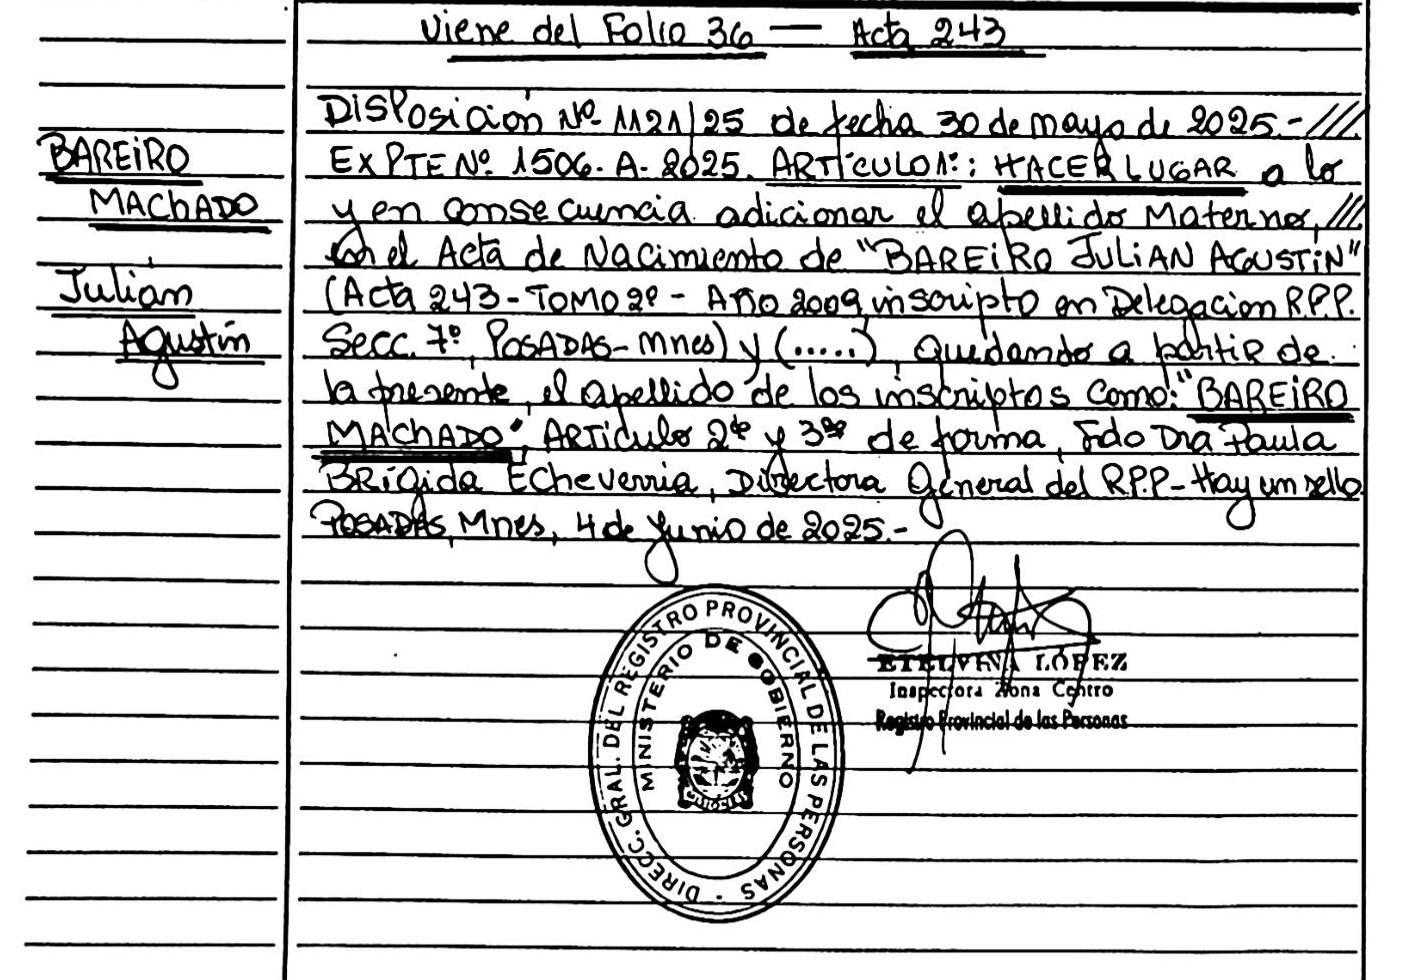 Viene del Folio 36 — Acta 243
DISPosición Nº 1121/25 de fecha 30 de mayo de 2025.- ///
EXPTE Nº 1506-A-2025. ARTÍCULO 1º: HACER LUGAR a lo
y en consecuencia adicionar el apellido Materno, ///
en el Acta de Nacimiento de "BAREIRO JULIAN AGUSTÍN"
(Acta 243-TOMO 2º - Año 2009 inscripto en Delegacion R.P.P.
Secc. 7º, POSADAS-Mnes) y (.....), quedando a partir de
la presente, el apellido de los inscriptos como: "BAREIRO
MACHADO", ARTÍCULO 2do y 3ro de forma, Fdo Dra Paula
BRÍGida Echeverria, Directora General del R.P.P- Hay un sello
POSADAS, Mnes, 4 de Junio de 2025.-
BAREIRO
MAChADO
Julián
Agustín
DIRECC. GRAL. DEL REGISTRO PROVINCIAL DE LAS PERSONAS -
MINISTERIO DE GOBIERNO
ETELVINA LÓPEZ
Inspectora Zona Centro
Registro Provincial de las Personas